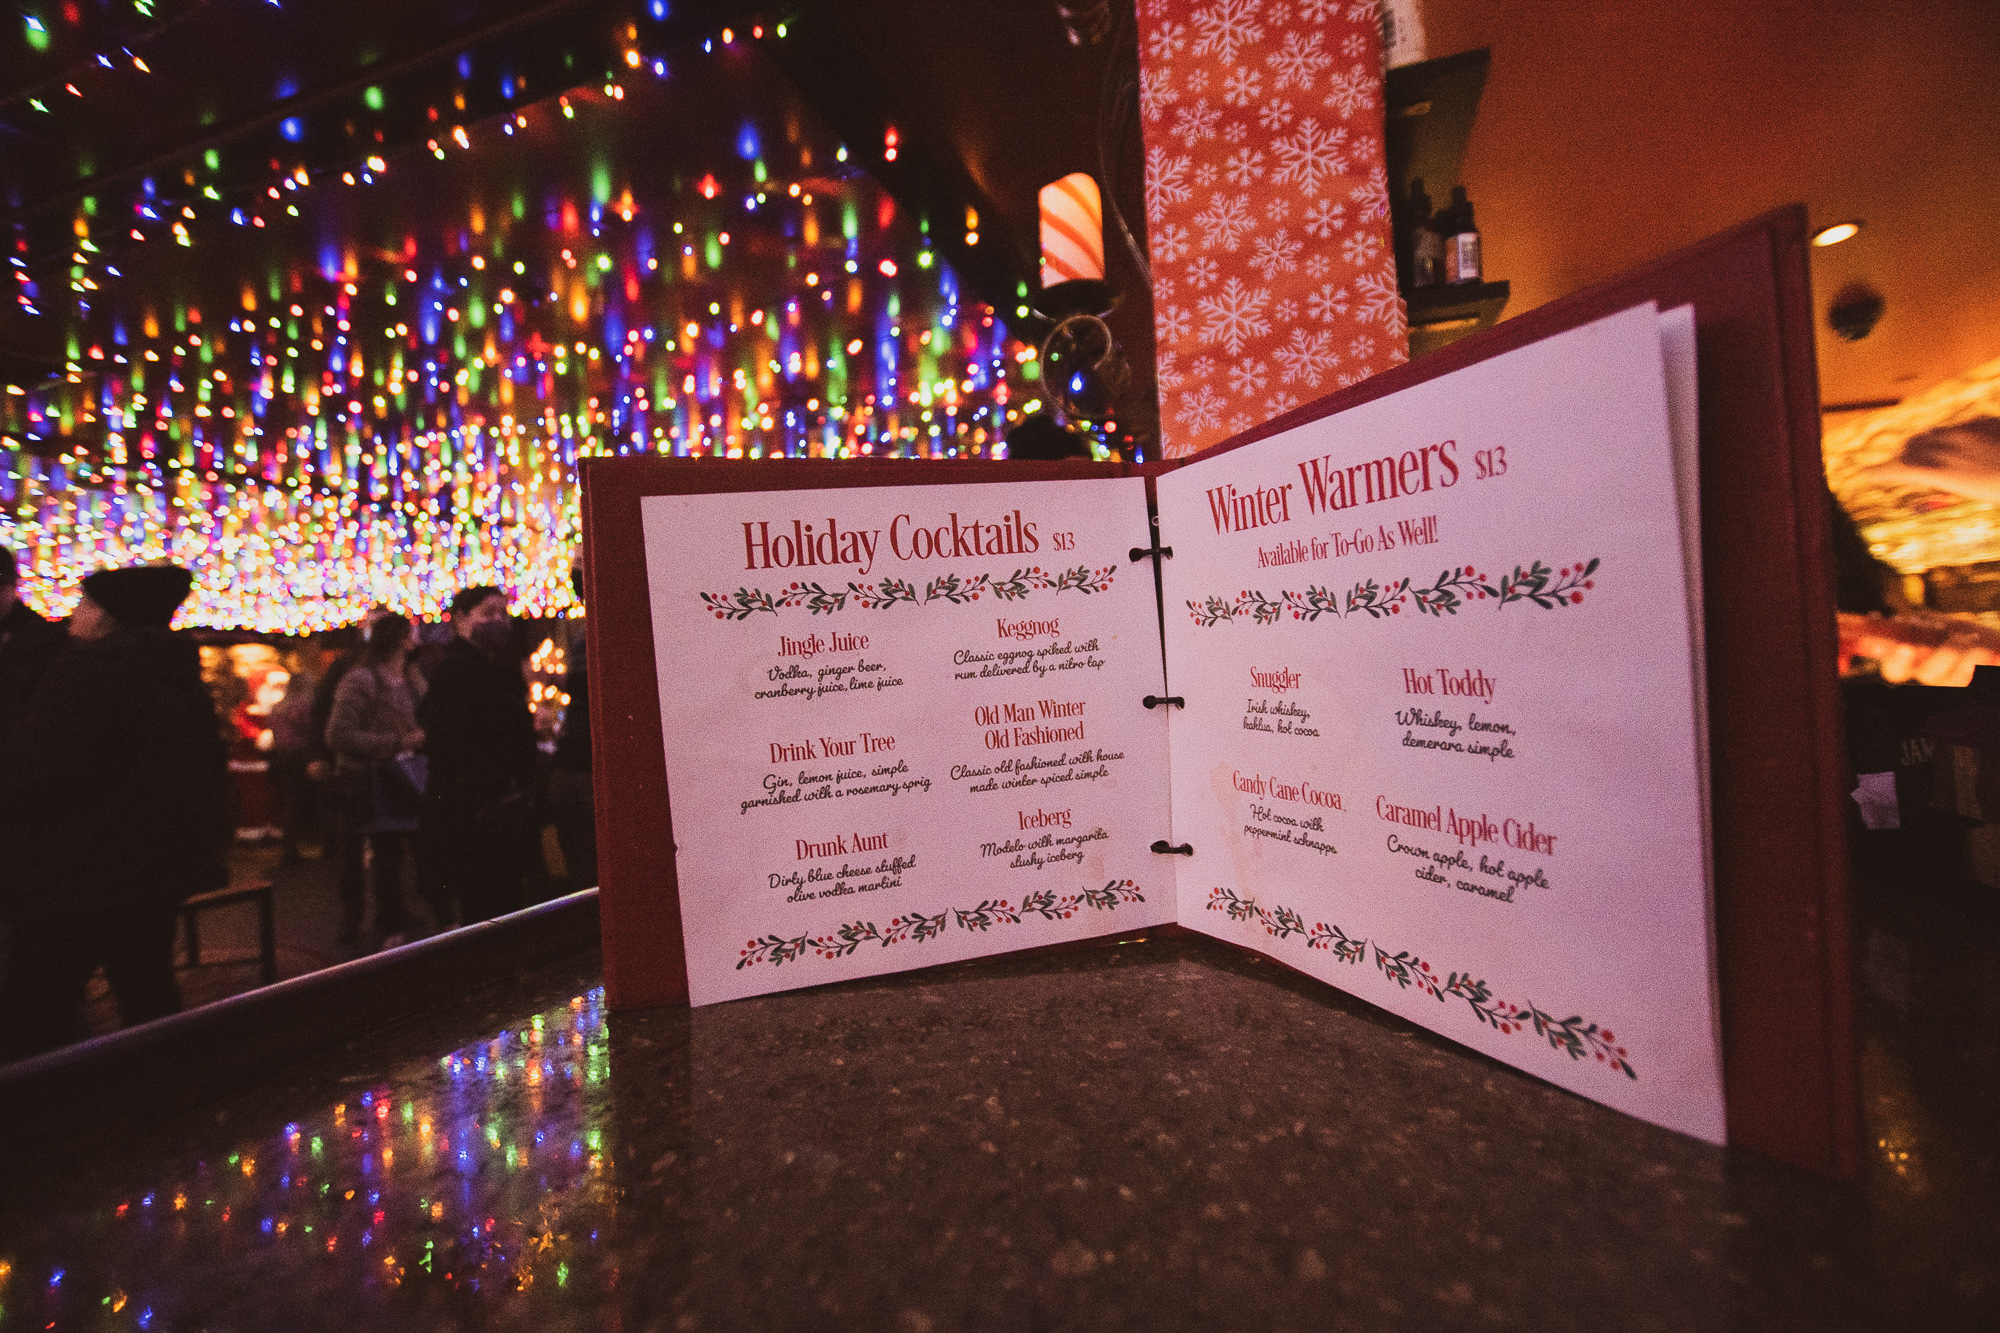 Holiday Cocktails $13
Jingle Juice
Vodka, ginger beer,
cranberry juice, lime juice
Drink Your Tree
Gin, lemon juice, simple
garnished with a rosemary sprig
Drunk Aunt
Dirty blue cheese stuffed
olive vodka martini
Keggnog
Classic eggnog spiked with
rum delivered by a nitro tap
Old Man Winter
Old Fashioned
Classic old fashioned with house
made winter spiced simple
Iceberg
Modelo with margarita
slushy iceberg
Winter Warmers $13
Available for To-Go As Well!
Snuggler
Irish whiskey,
kahlua, hot cocoa
Candy Cane Cocoa
Hot cocoa with
peppermint schnapps
Hot Toddy
Whiskey, lemon,
demerara simple
Caramel Apple Cider
Crown apple, hot apple
cider, caramel